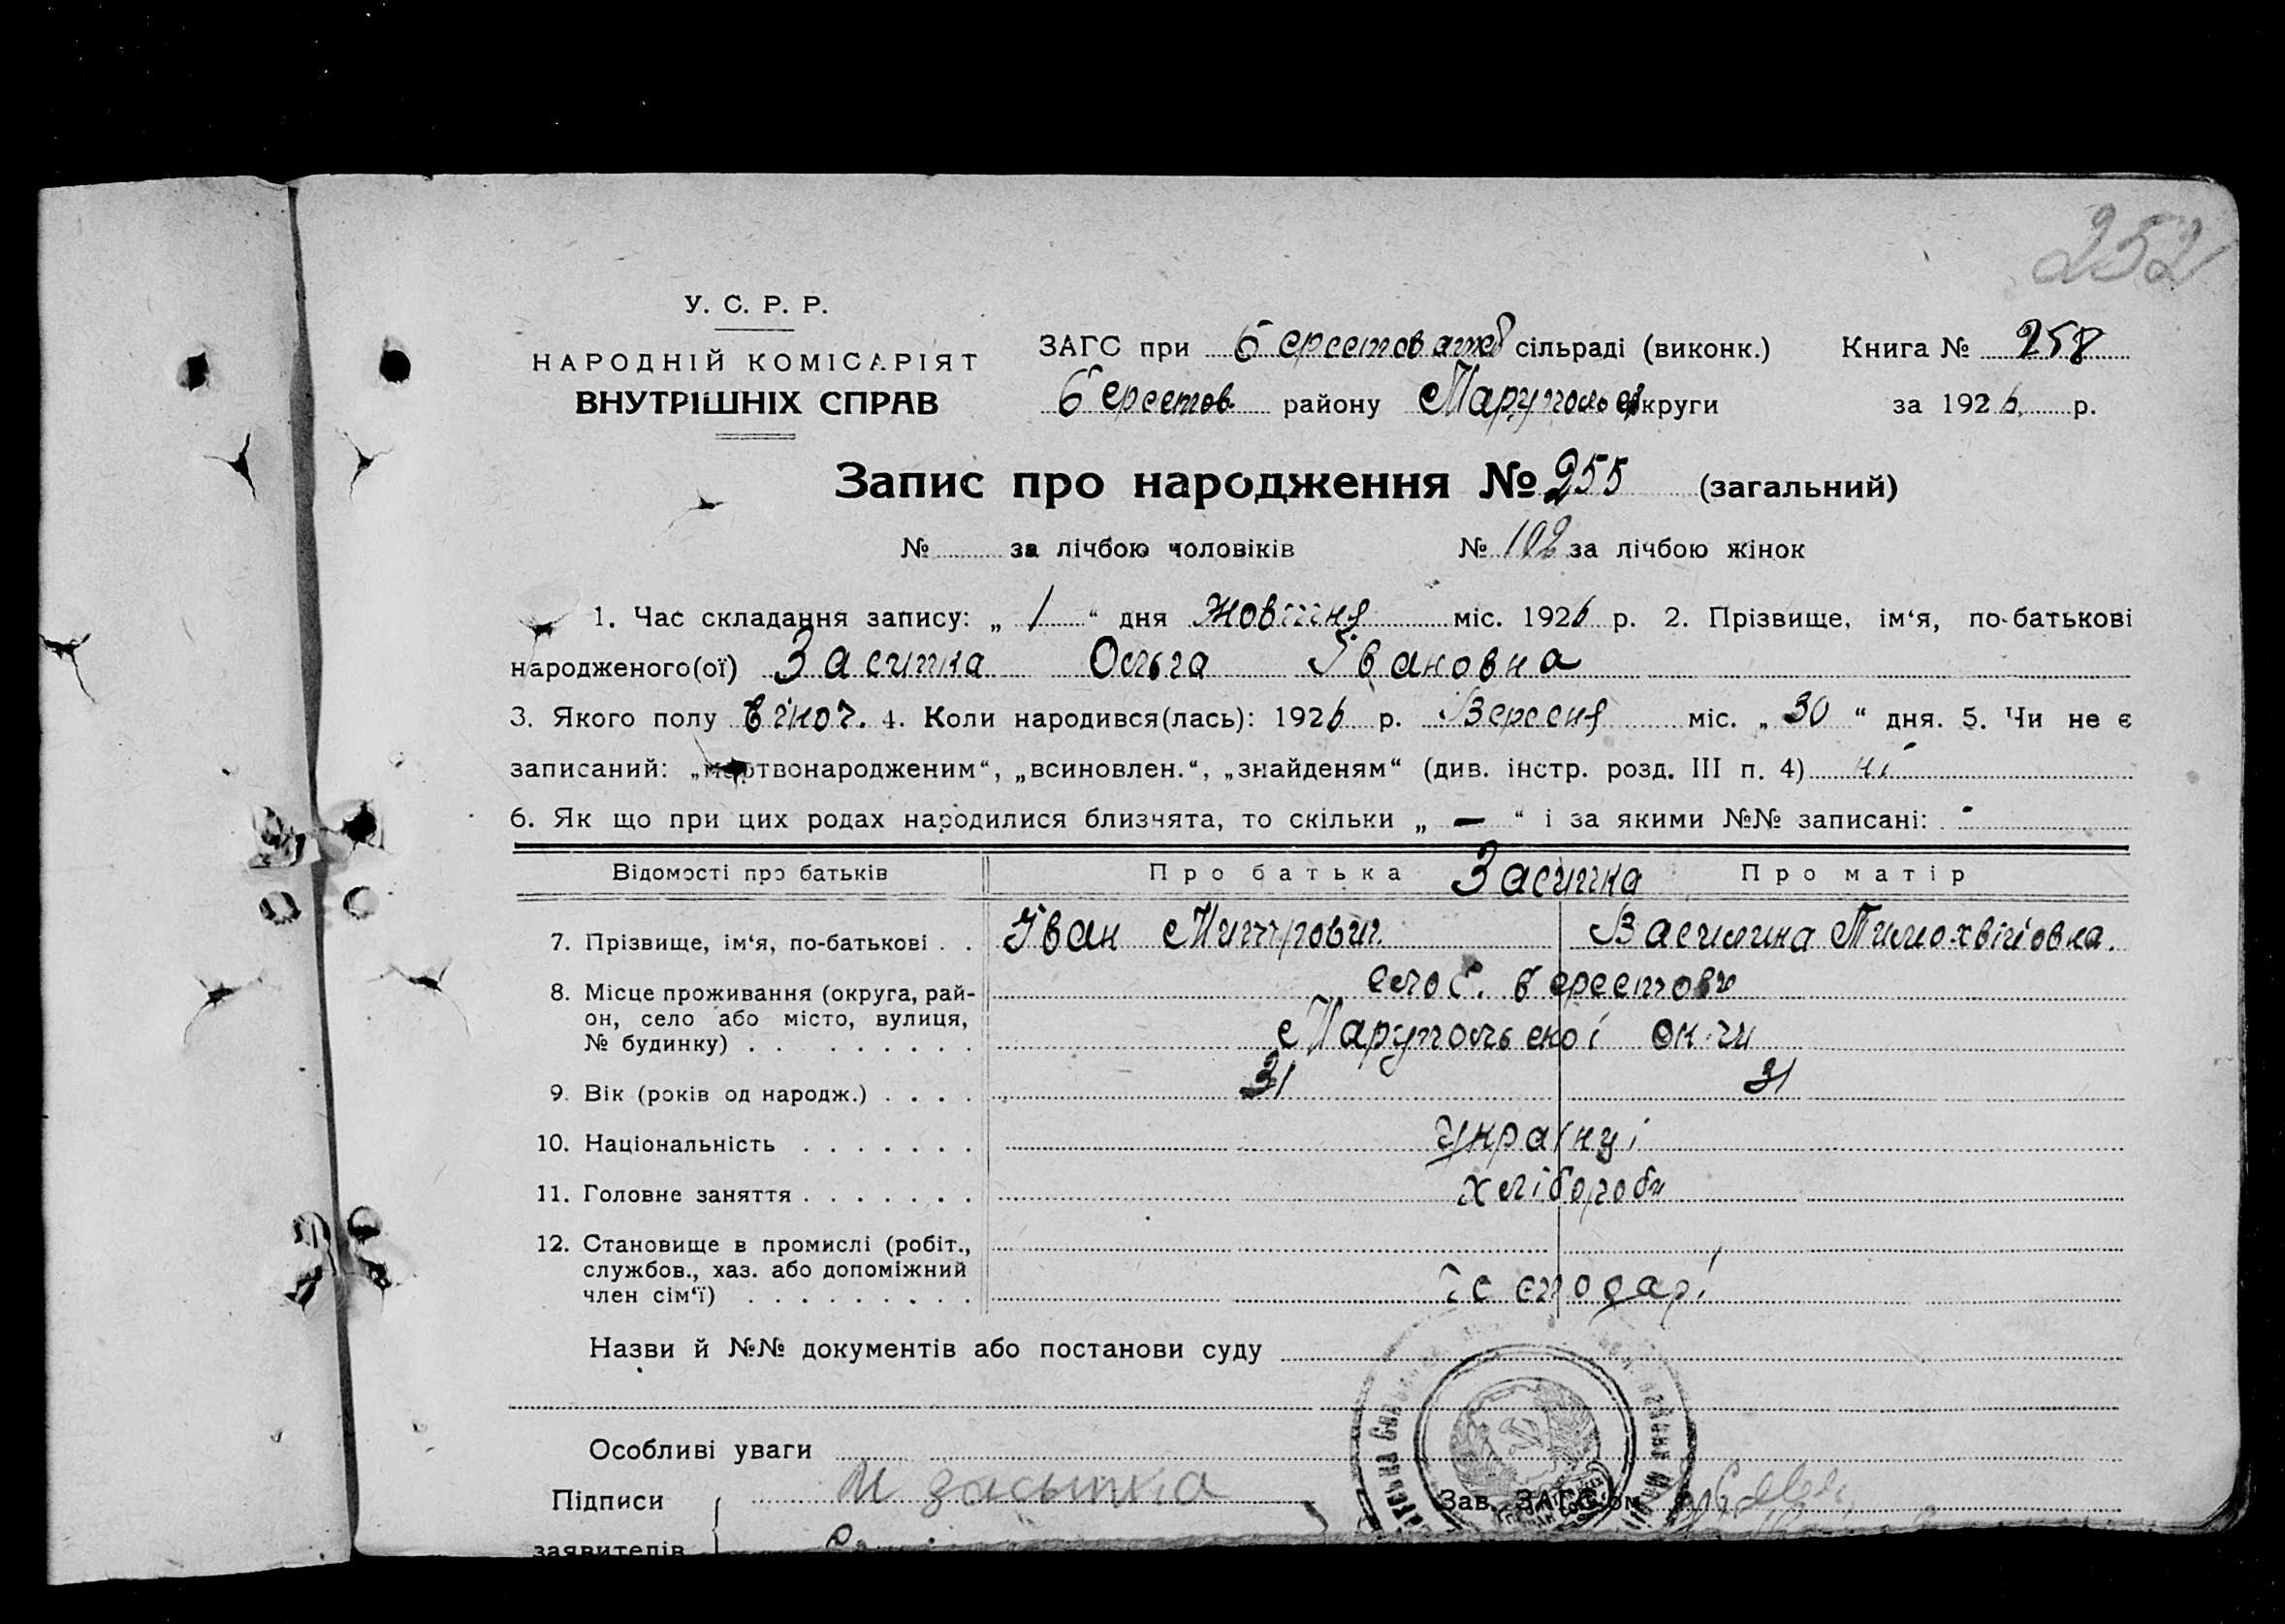 252
У. С. Р. Р.
НАРОДНІЙ КОМІСАРІЯТ
ВНУТРІШНІХ СПРАВ
ЗАГС при Берестоват сільраді (виконк.) Книга № 258
Берестов. району Маруполь округи за 1926 р.
Запис про народження № 255 (загальний)
№ за лічбою чоловіків № 102 за лічбою жінок
1. Час складання запису: „ 1 “ дня Жовтня міс. 1926 р. 2. Прізвище, ім‘я, по-батькові
народженого(ої) Засипка Ольга Івановна
3. Якого полу жіноч. 4. Коли народився(лась): 1926 р. Вересня міс. „ 30 “ дня. 5. Чи не є
записаний: „мертвонародженим“, „всиновлен.“, „знайденям“ (див. інстр. розд. III п. 4) ні
6. Як що при цих родах народилися близнята, то скільки „ — “ і за якими №№ записані: -
Відомості про батьків Про батька Засипка Про матір
7. Прізвище, ім‘я, по-батькові . . Іван Митрович. Василина Тимохвіївна.
8. Місце проживання (округа, рай-
он, село або місто, вулиця,
№ будинку) . . . . . . . . .
Берестове
Марупольської ок-ги
9. Вік (років од народж.) . . . . 31 31
10. Національність . . . . . . . українці
11. Головне заняття . . . . . . . хлібороби
12. Становище в промислі (робіт.,
службов., хаз. або допоміжний
член сім‘ї) . . . . . . . . .
господарі
Назви й №№ документів або постанови суду
Особливі уваги
Підписи И засыпка Зав. ЗАГС‘ом
заявителів